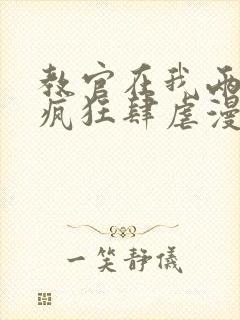 教官在我两
疯狂肆虐漫
一笑静儀